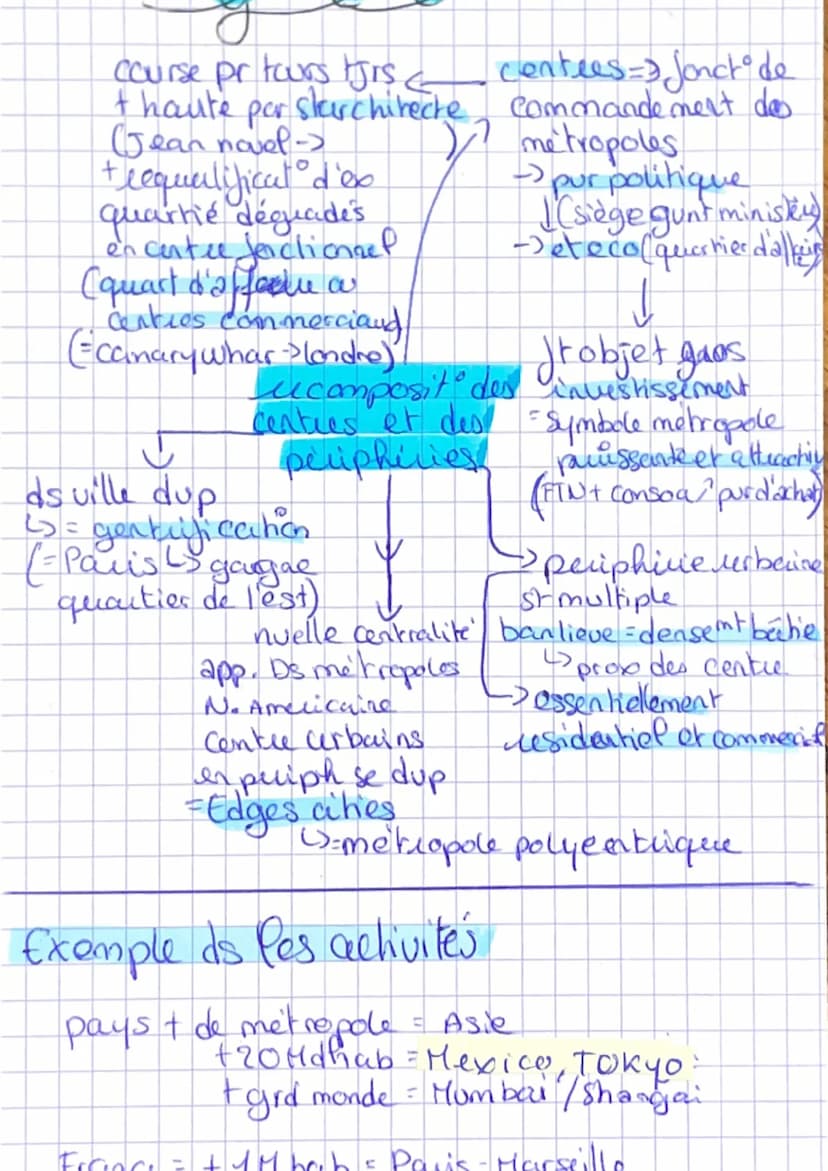 course pr tours tjrs
+ haute par starchitecte
(Jean nouvel ->
+ requalificat° d'ex
quartié dégradés
en centre fonctionnel
(quart d'affaire ou
centres commerciaux)
(=canary whar -> londre)
)
centres => fonct° de
commandement des
métropoles
-> pvr politique
(siège gvnt ministèr)
-> et eco (quartier d'affair
↓
ft objet gros
investissement
= symbole métropole
puissante et attractiv
(FTN + conso a ↗ pvr d'achat)
recomposit° des
centres et des
périphéries
ds ville dvp
↳ = gentrification
(=Paris ↳ gagne
quartier de l'est)
nvelle centralité
app. Ds métropoles
N. Américaine
centre urbains
en periph se dvp
= Edges cities
↳ = métropole polycentrique
-> periphirie urbaine
st multiple
banlieue = densemt bâtie
↳ prox des centre
-> essentiellement
résidentiel et commercial
Exemple ds les activités
pays + de métropole = Asie
+20 Mdhab = Mexico, TOKYO
+ grd monde = Mumbai / Shangai
France = + 1M hab = Paris - Marseille